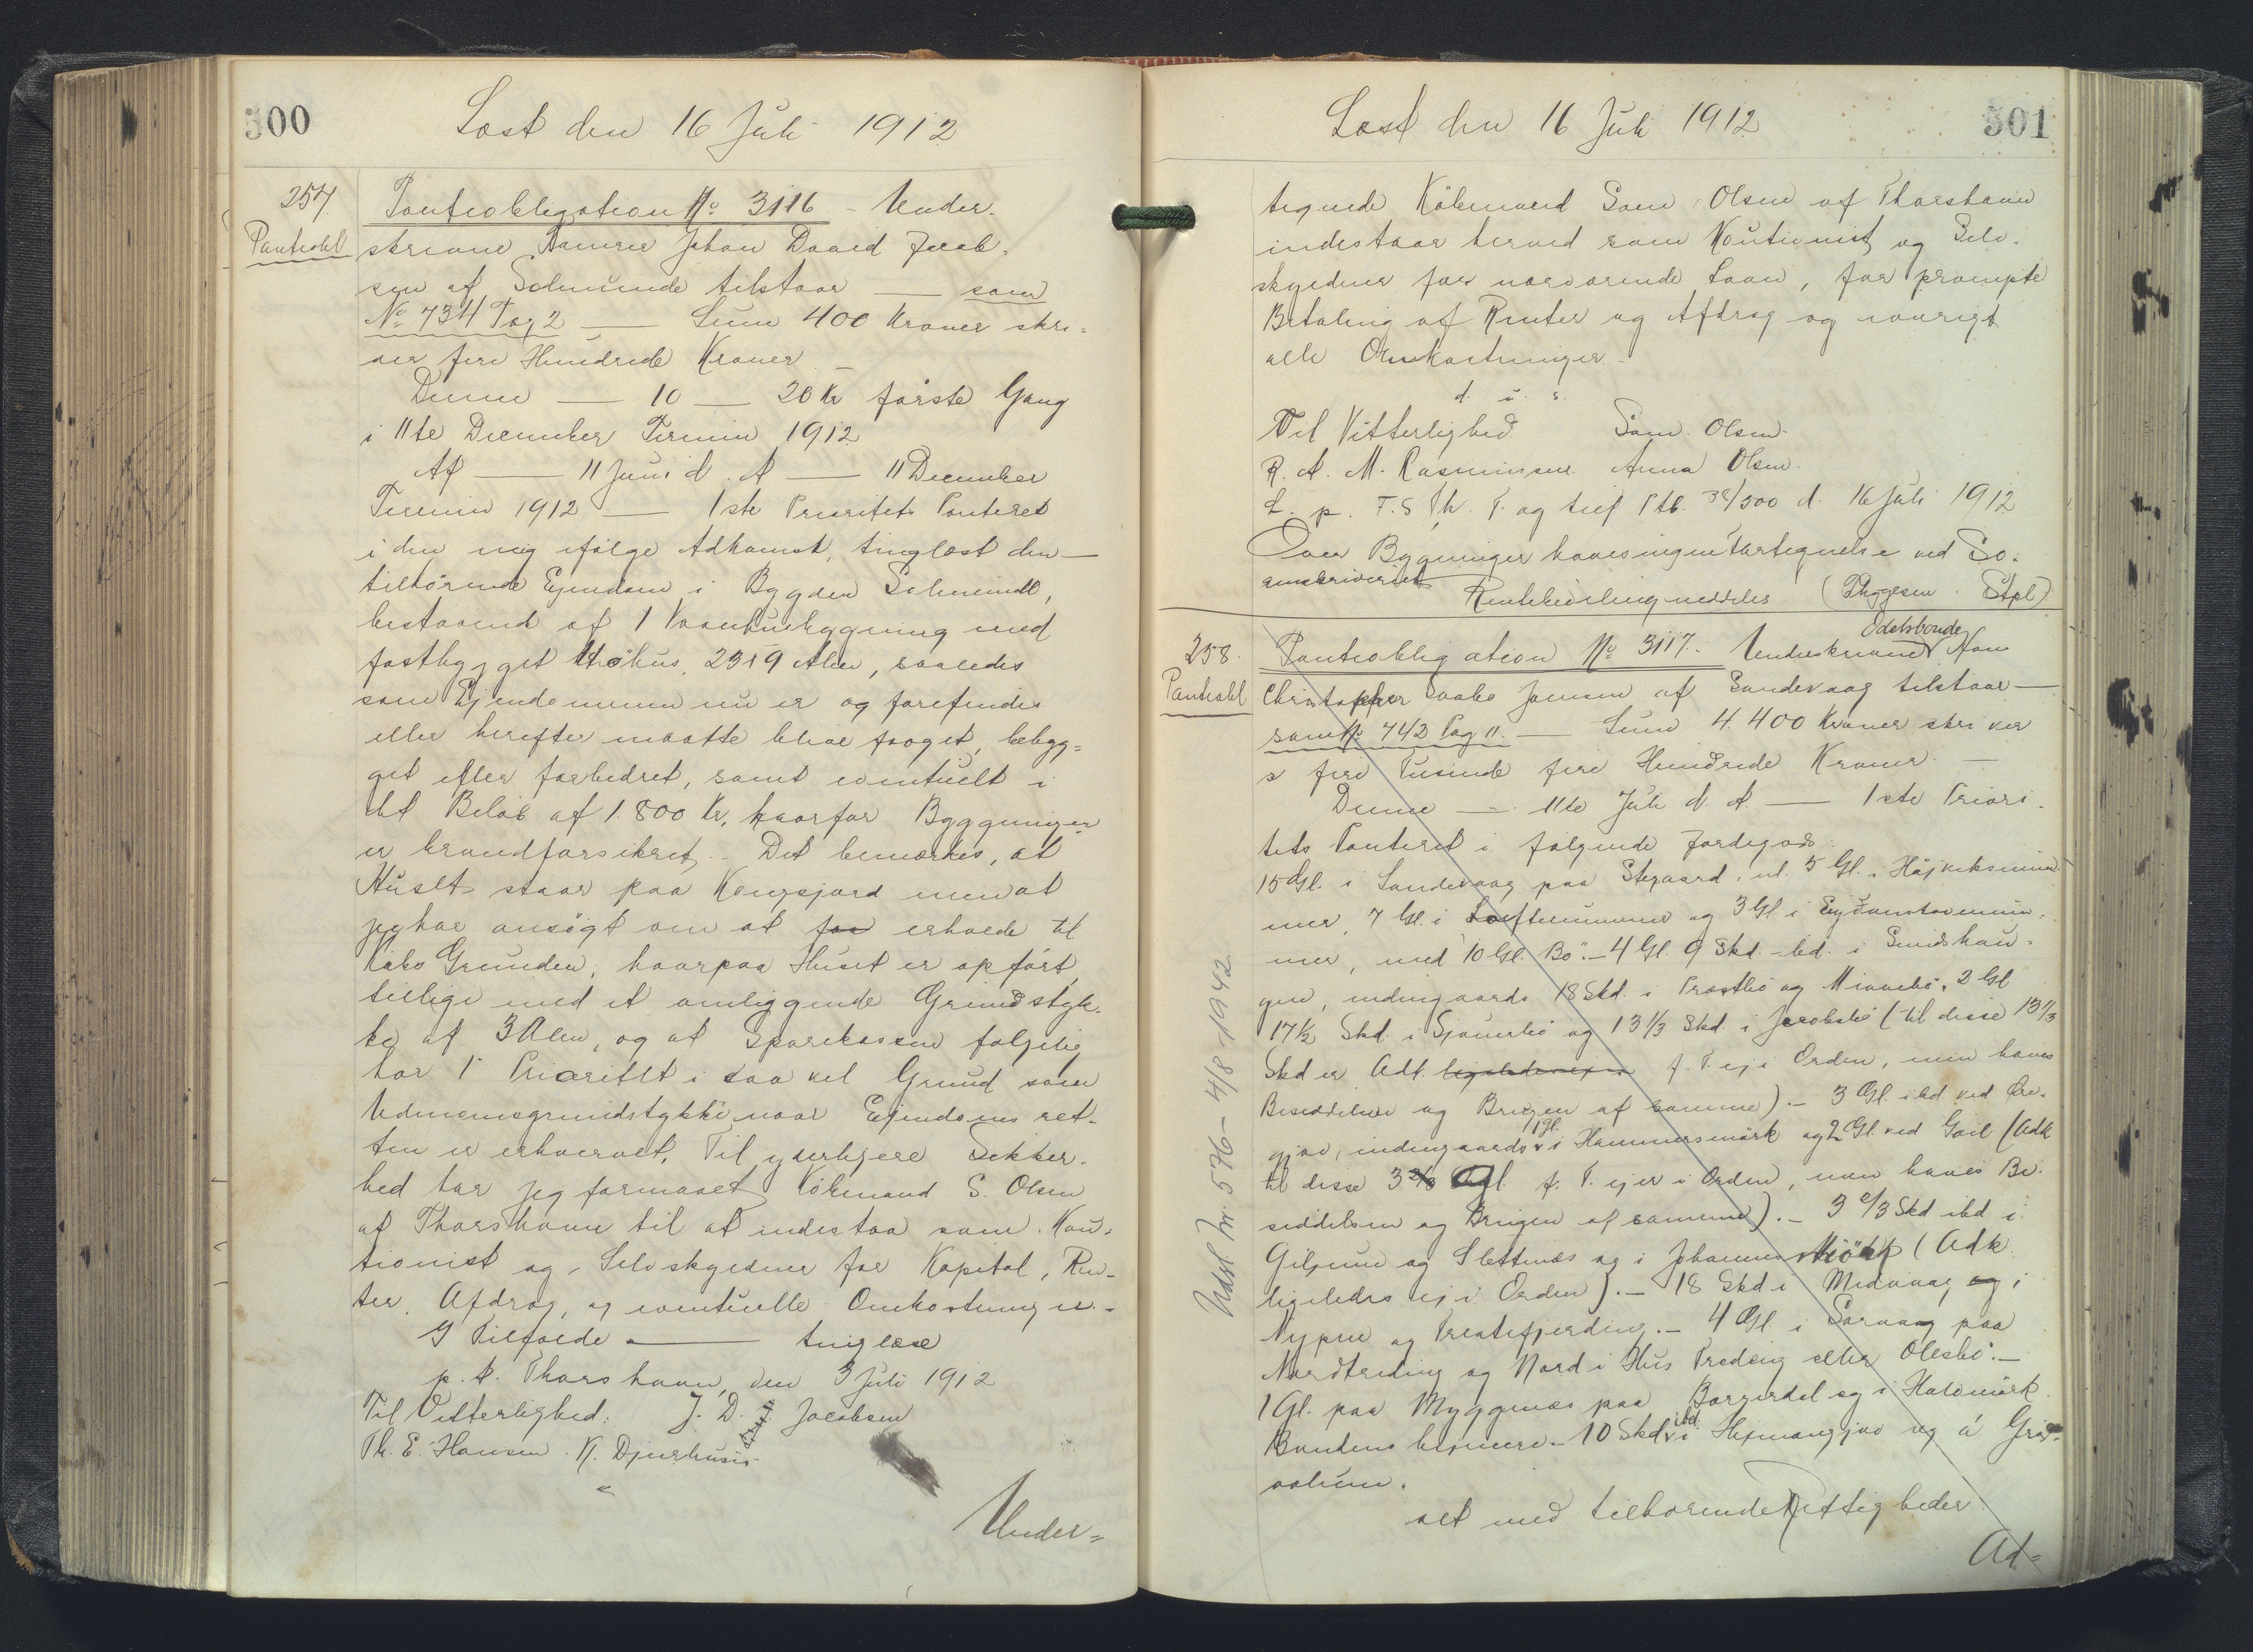 500
Læst den 16 Juli 1912
257.
Panteobl
Panteobligation No 3116 - Under-
skrevne Tømrer Johan David Jacob-
sen af Solmunde tilstaar — som
No 734 Pag 2 — Sum 400 Kroner skri-
ver fire Hundrede Kroner
Denne — 10 — 20 Kr første Gang
i 11te December Termin 1912
Af — 11 Juni d. A — 11 December
Termin 1912 — 1ste Prioritets Panteret
i den mig ifølge Adkomst, tinglæst den —
tilhørende Ejendom i Bygden Solmunde,
bestaaende af 1 Vaanhusbygning med
fastbygget Høhus, 2319 Alen, saaledes
som Ejendommen nu er og forefindes
eller herefter maatte blive forøget, bebyg-
get eller forbedret, samt eventuelt i
det Beløb af 1.800 Kr, hvorfor Bygningen
er brandforsikret. - Det bemærkes, at
Huset staar paa Kongsjord men at
jeg har ansøgt om at faa erholde til
Købs Grunden, hvorpaa Huset er opført
tillige med et omliggende Grundstyk-
ke af 3 Alen, og at Sparekassen følgelig
har 1 Prioritet i saa vel Grund som
Udmensgrundstykke naar Ejendoms ret-
ten er erhvervet. Til yderligere Sikker-
hed har jeg formaaet Købmand S. Olsen
af Thorshavn til at indestaa som Kau-
tionist og Selvskyldner for Kapital, Ren-
ter, Afdrag, og eventuelle Omkostninger. -
I Tilfælde — tinglæse
p. t. Thorshavn, den 3 Juli 1912
Til Vitterlighed: J. D. J. Jacobsen
Th. E. Hansen. K. Djurhuus
Under-
Læst den 16 Juli 1912
501
tegnede Købmand Sam Olsen af Thorshavn
indestaar herved som Kautionist og Selv-
skyldner for nærværende Laan, for prompte
Betaling af Renter og Afdrag og iøvrigt
alle Omkostninger -
d. u. s.
Til Vitterlighed Sam. Olsen.
R. A. M. Rasmussen. Anna Olsen.
L. p. F. S Th. P. og tief Ptb. 38/500 d. 16 Juli 1912
Over Bygninger haves ingen Fortegnelse ved So-
renskriveriet
Rentebevilling meddeles (Thygesen. Stpl)
258.
Panteobl
Panteobligation No 3117. Underskrevne Odelsbonde Hans
Christopher Saabo Jensen af Sandevaag tilstaar —
som No 742 Pag 11. — Sum 4.400 Kroner skriver
s fire Tusinde fire Hundrede Kroner. —
Denne — 11te Juli d. A — 1ste Priori-
tets Panteret i følgende Jordegods:
15 Gl. i Sandevaag paa Stegaard, nl. 5 Gl. i Højveksnum-
mer, 7 Gl. i Loftenummer og 3 Gl i Eydanstovenum-
mer, med 10 Gl. Bø. - 4 Gl. 9 Skd ibd. i Smidshau-
gen, indengaards 18 Skd. i Præstbø og Minnebø, 2 Gl
17½ Skd. i Sjovarbø og 13⅓ Skd. i Jacobsbø (til disse 13⅓
Skd er Adk. f. T. ej i Orden, men haves
Besiddelsen og Brugen af samme). - 3 Gl. ibd ved Øre-
gjov, indengaards 1 gl. i Hammersmørk og 2 Gl. ved Gail (Adk
til disse 3 Gl f. T. ej er i Orden, men haves Be-
siddelsen og Brugen af samme). - 3⅔ Skd ibd i
Giljunu og Slettnæs og i Johannesmørk (Adk
ligeledes ej i Orden). - 18 Skd i Midvaag og i
Nypen og Treatefjerding. - 4 Gl. i Sørvaag paa
Nordtreding og Nord i Hus Treding eller Olesbø. -
1 Gl. paa Myggenæs paa Borgerdal og i Halvmørk
Bondens hejmere - 10 Skd ibd i Hejmangjov og á Grø-
valum.
alt med tilhørende Rettigheder.
Ad-
Udsl. Nr. 576 - 4/8 1942